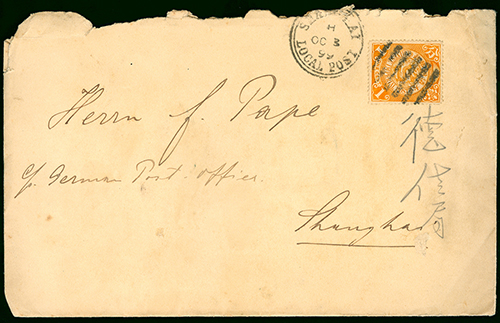 SHANGHAI
H
OC 3
99
LOCAL POST
1
Herrn f. Pape
c/o German Post: Office.
Shanghai
德信局